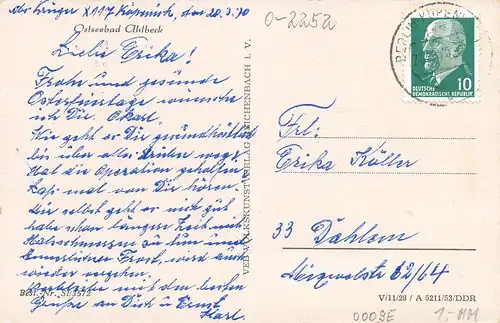 X117 Köpenick, den 20.3.70
0-2252
Ostseebad Ahlbeck
Liebe Erika!
Frohe und gesunde
Osterfeiertage wünscht
ich Dir. O Karl.
Wie geht es Dir gesundheitlich
bis über alle
Hat die Operation geholfen
Laß mal von Dir hören.
Mir selbst geht es nicht gut
habe schon längere Zeit mit
Halsschmerzen zu tun und
wieder vergehen.
Verbleibe mit den besten
Grüßen an Dich u Ernst
Karl.
Best.-Nr. SI/3572
VEB VOLKSKUNSTVERLAG REICHENBACH I. V.
BERLIN
10
DEUTSCHE
DEMOKRATISCHE REPUBLIK
Frl:
Erika Köller
33 Dahlem
62/64
V/11/28 / A 5211/53/DDR
0009E
1.-MM